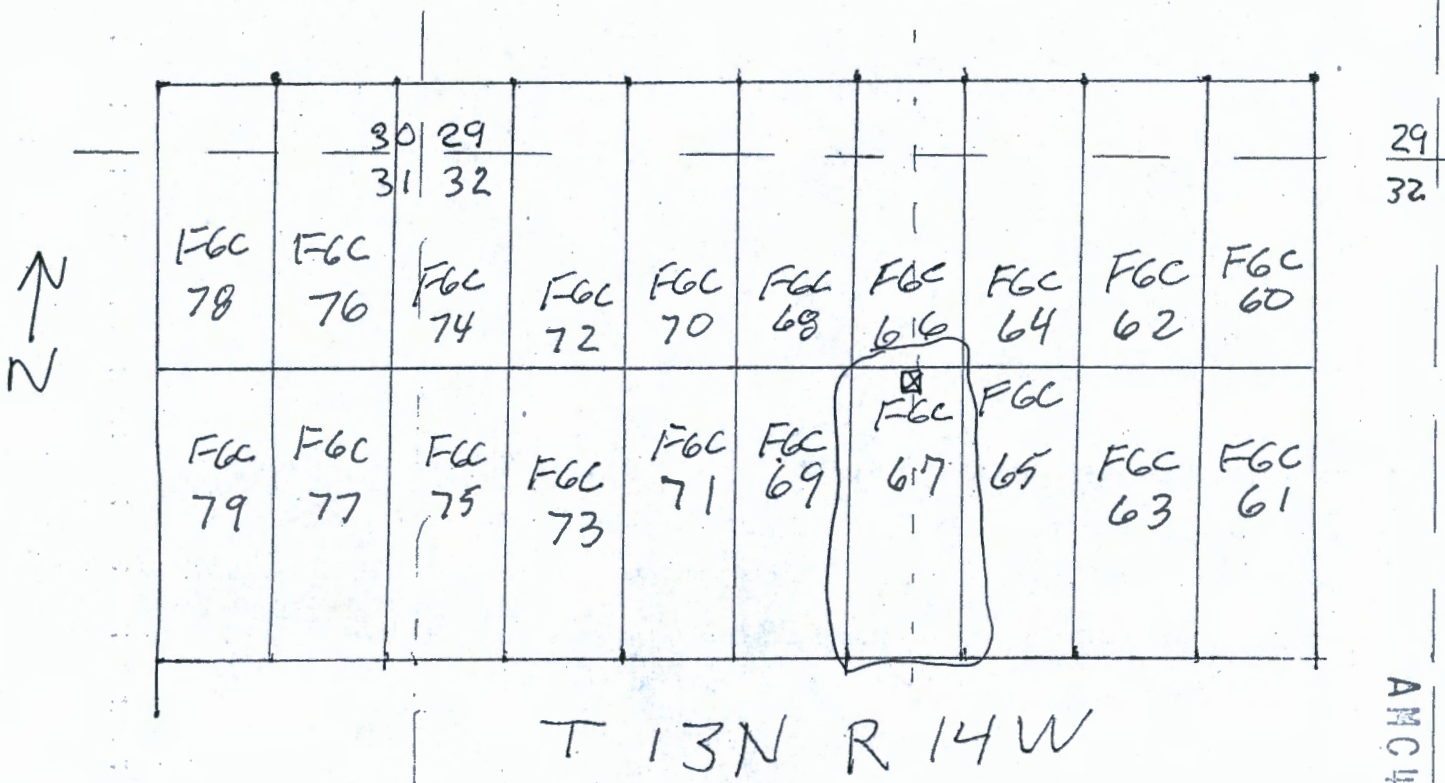 30 29
31 32
29
32
FGC
78
FGC
76
FGC
74
FGC
72
FGC
70
FGC
68
FGC
66
FGC
64
FGC
62
FGC
60
N
FGC
79
FGC
77
FGC
75
FGC
73
FGC
71
FGC
69
FGC
67
FGC
65
FGC
63
FGC
61
T 13N R 14W
AMC